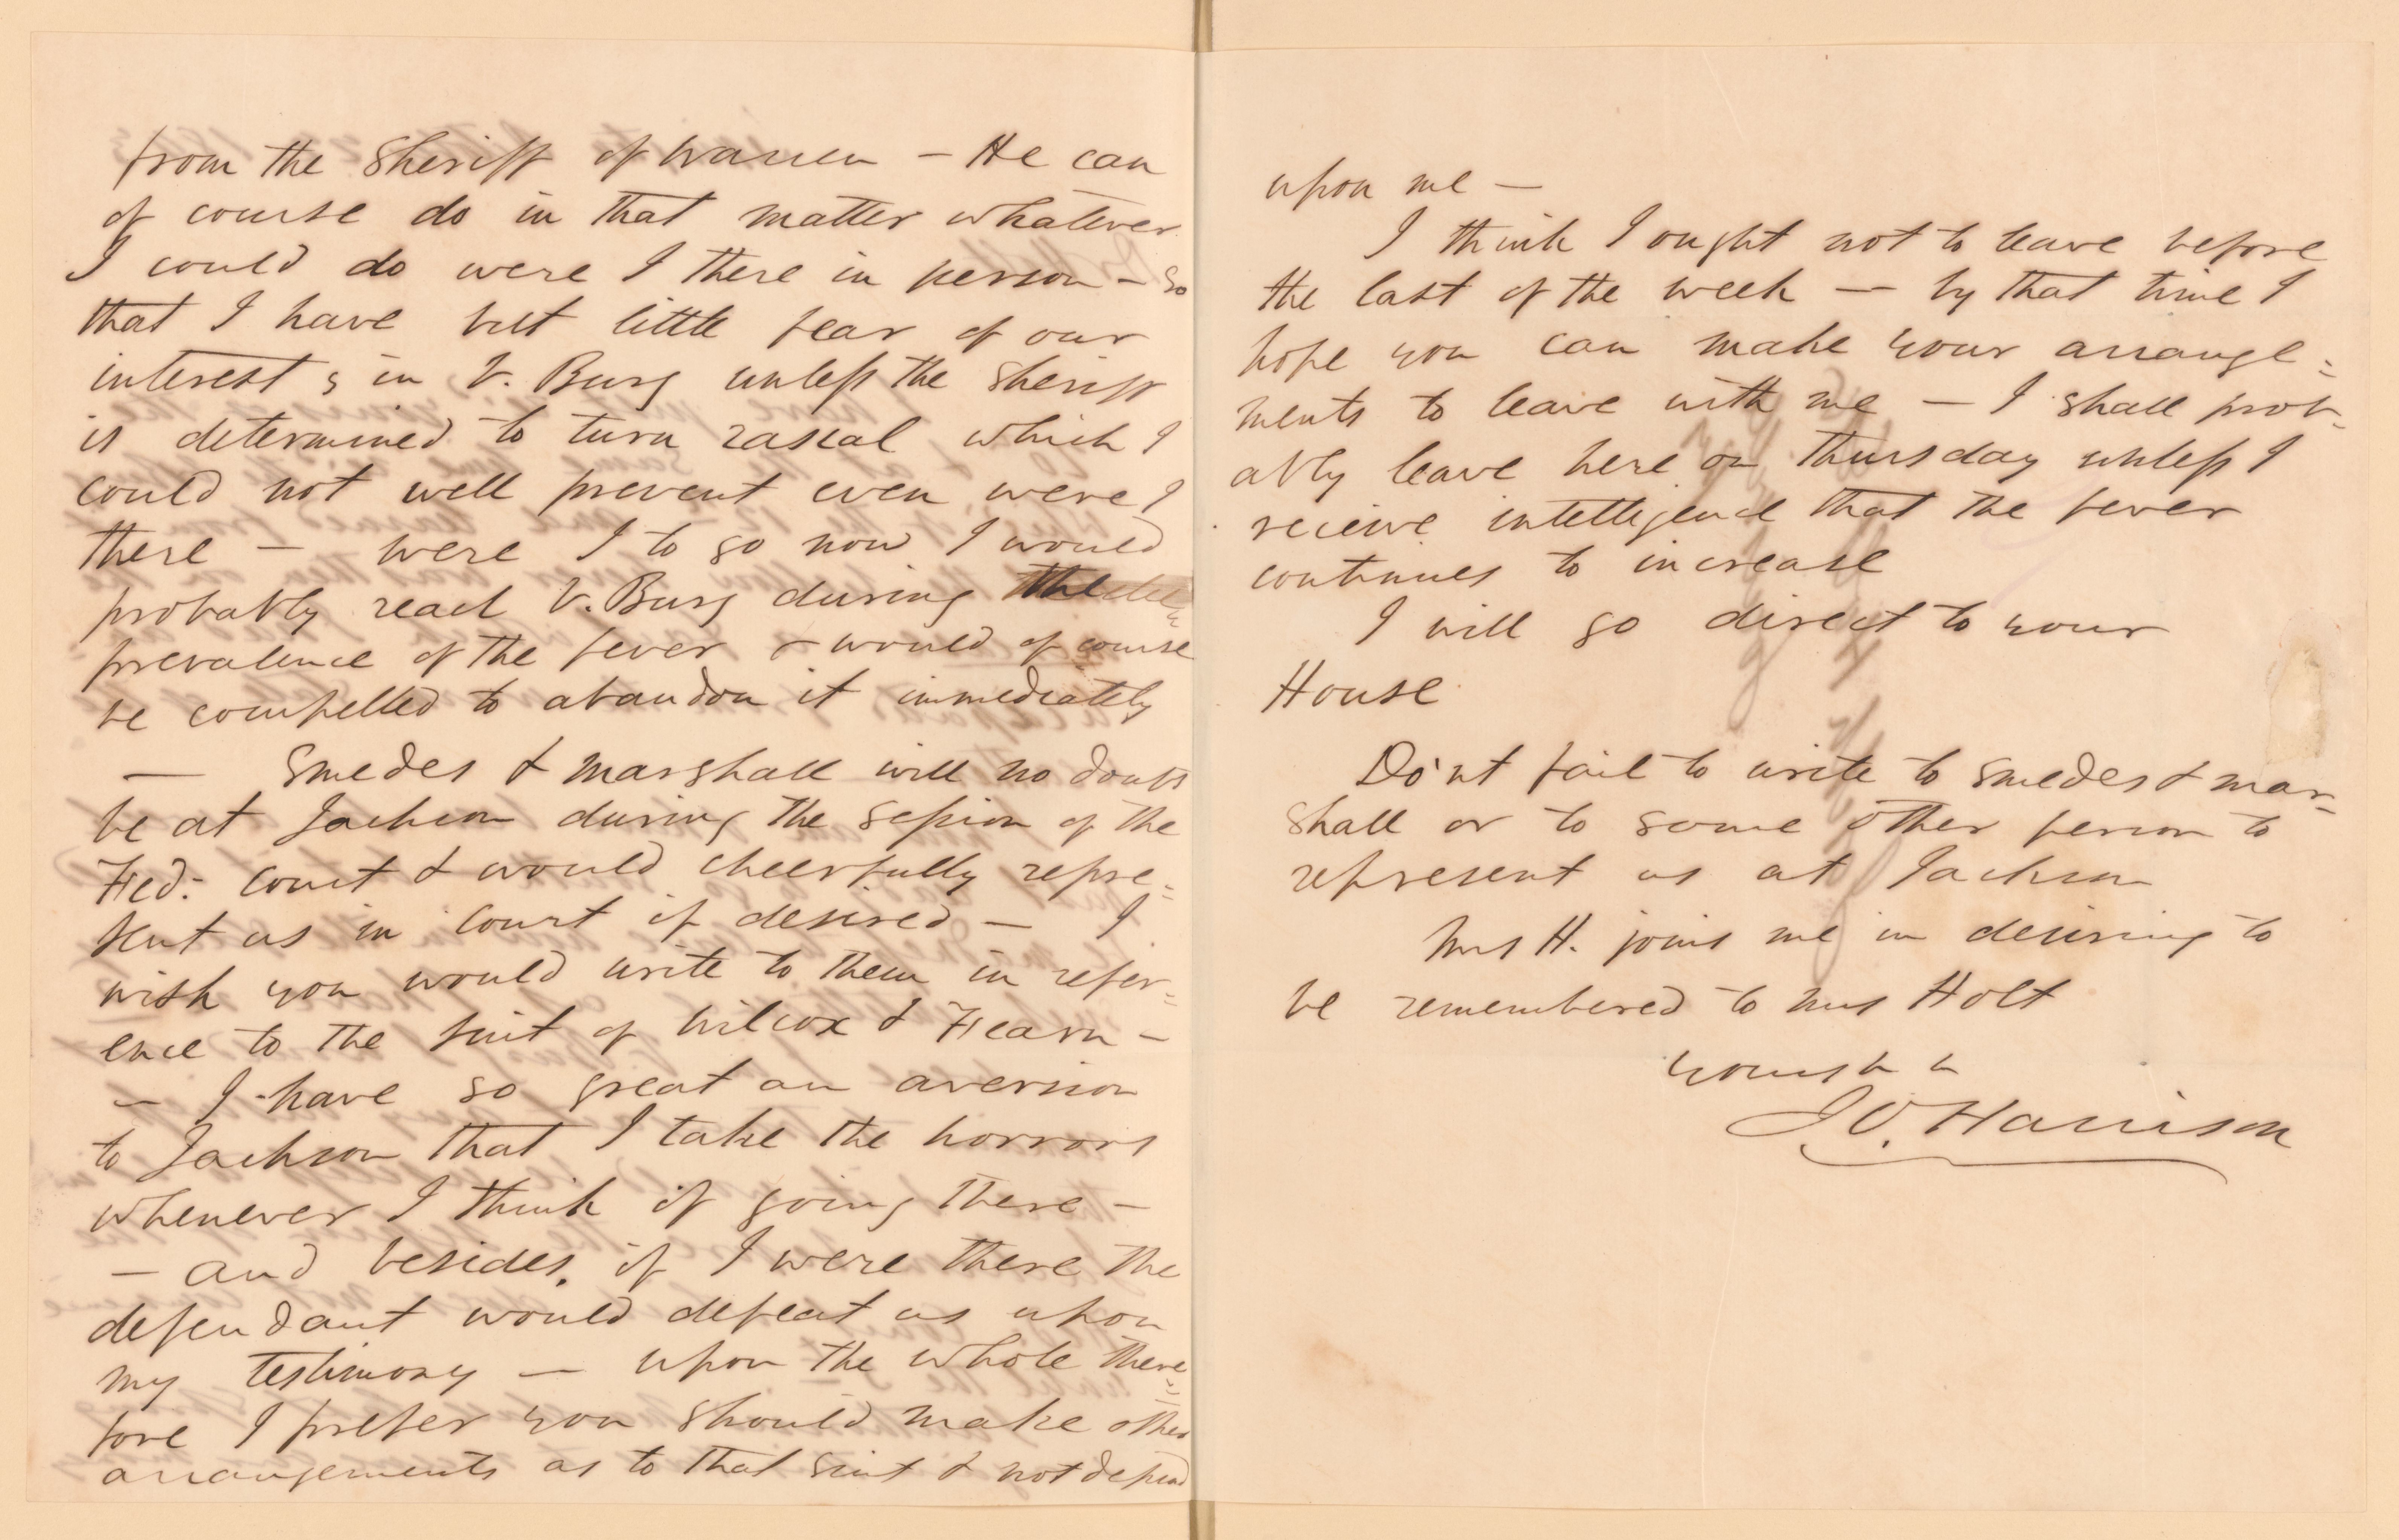 from the Sheriff of Warren — He can
of course do in that matter whatever
I could do were I there in person — so
that I have but little fear of our
interests in V. Burg unless the Sheriff
is determined to turn rascal which I
could not well prevent even were I
there — were I to go now I would
probably reach V. Burg during the
prevalence of the fever & would of course
be compelled to abandon it immediately
— Smedes & Marshall will no doubt
be at Jackson during the session of the
Fed: Court & would cheerfully repre=
sent us in Court if desired — I
wish you would write to them in refer=
ence to the suit of Wilcox & Fearn —
— I have so great an aversion
to Jackson that I take the horrors
whenever I think of going there —
— and besides, if I were there the
defendant would defeat us upon
my testimony — upon the whole there=
fore I prefer you should make other
arrangements as to that suit & not depend
upon me —
I think I ought not to leave before
the last of the week — by that time I
hope you can make your arrange=
ments to leave with me — I shall prob=
ably leave here on Thursday unless I
receive intelligence that the fever
continues to increase
I will go direct to your
House
Do'nt fail to write to Smedes & Mar=
shall or to some other person to
represent us at Jackson
Mrs H. joins me in desiring to
be remembered to Mrs Holt
J.O. Harrison